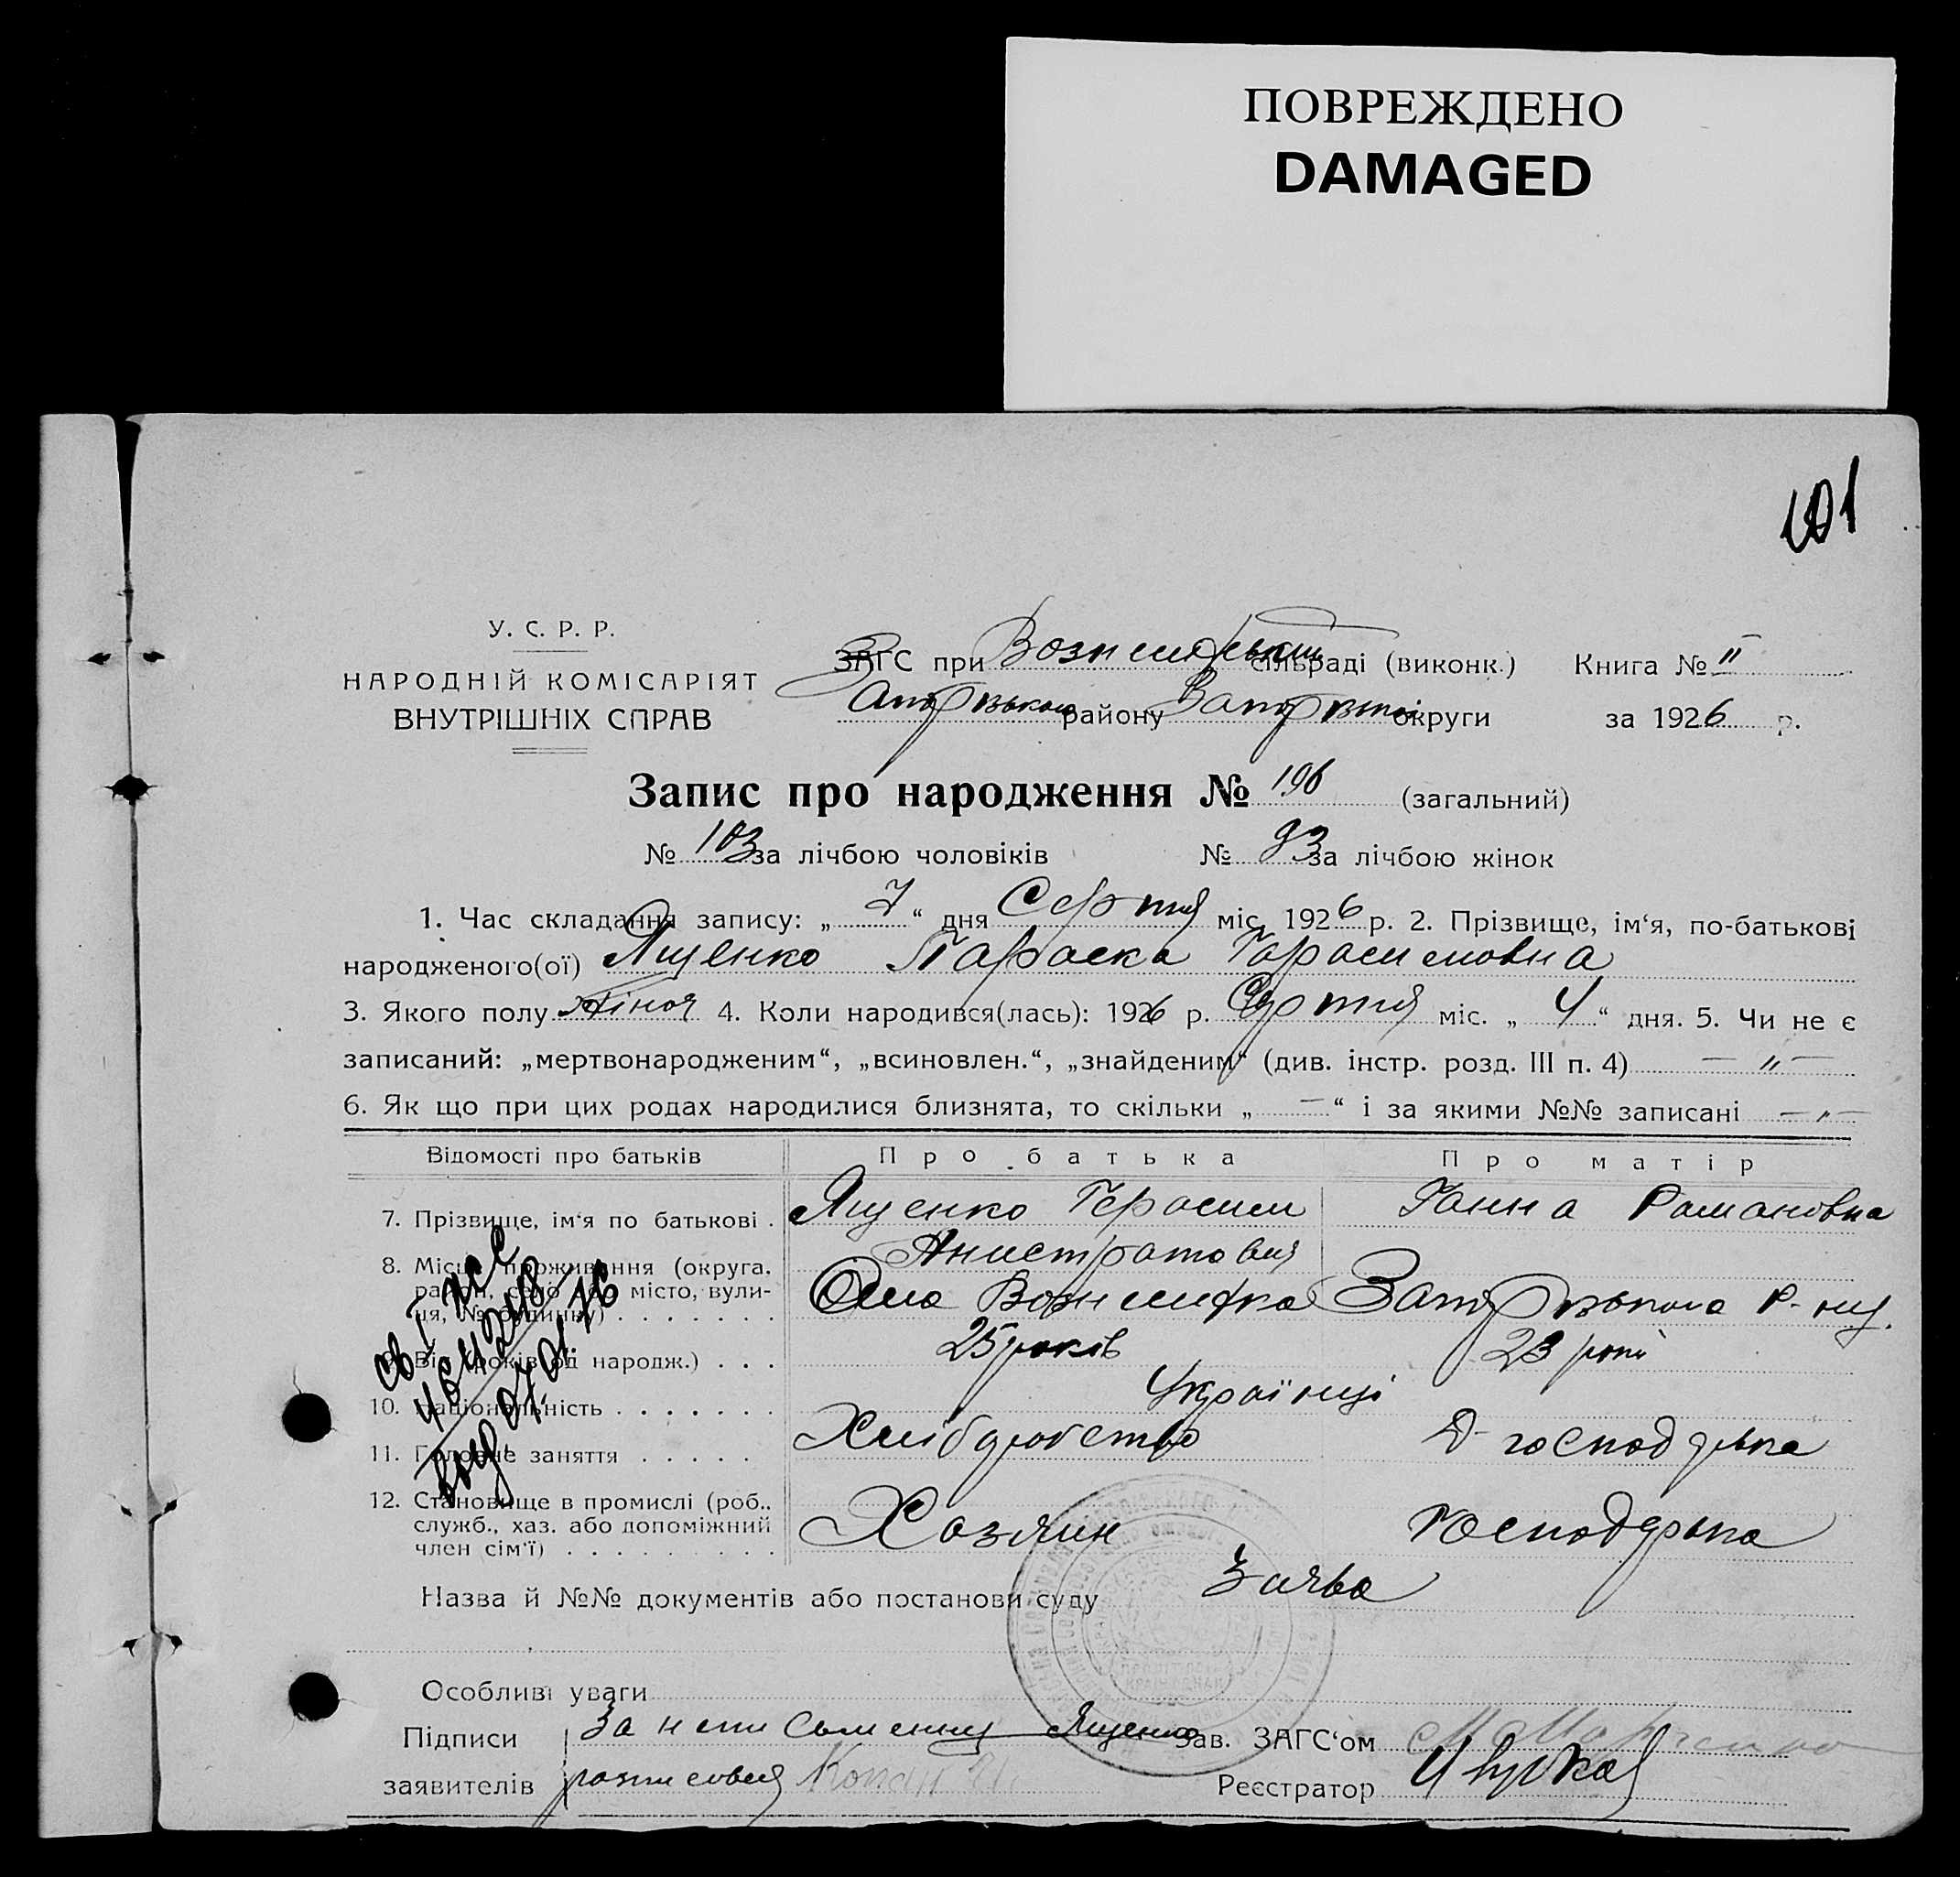 ПОВРЕЖДЕНО
DAMAGED
101
У. С. Р. Р.
НАРОДНІЙ КОМІСАРІЯТ
ВНУТРІШНІХ СПРАВ
ЗАГС при сільраді (виконк.) Книга № II
району округи за 1926 р.
Запис про народження № 196 (загальний)
№ 103 за лічбою чоловіків № 93 за лічбою жінок
1. Час складання запису: „ 7 “ дня Серпня міс. 1926 р. 2. Прізвище, ім‘я, по-батькові
народженого(ої) Ященко Параска Гарасимовна
3. Якого полу жіноч 4. Коли народився(лась): 1926 р. Серпня міс. „ 4 “ дня. 5. Чи не є
записаний: „мертвонародженим“, „всиновлен.“, „знайденим“ (див. інстр. розд. III п. 4) — „ —
6. Як що при цих родах народилися близнята, то скільки „ — “ і за якими №№ записані — „ —
Відомості про батьків Про батька Про матір
7. Прізвище, ім‘я по батькові . Ященко Герасим Ганна Романовна
Анистратович
8. Місце проживання (округа,
район, село або місто, вули-
ця, № будинку) . . . . . . . Село Вознесенка Запорізького р-ну.
9. Вік (років од народж.) . . . 25 років 23 роки
10. Національність . . . . . . . Українці
11. Головне заняття . . . . . Хліборобство Д-господарка
12. Становище в промислі (роб.,
служб., хаз. або допоміжний
член сім‘ї) . . . . . . . . . Хозяин Господарка
Назва й №№ документів або постанови суду Заява
Особливі уваги
Підписи За Ященко Зав. ЗАГС‘ом
заявителів росписовся Реєстратор